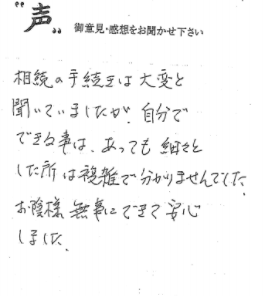 “声”
御意見・感想をお聞かせ下さい
相続の手続きは大変と
聞いていましたが、自分で
できる事は、あっても 細々と
した所は複雑で分かりませんでした。
お陰様 無事にできて安心
しました。